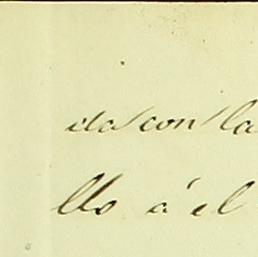 das con la
llo á el